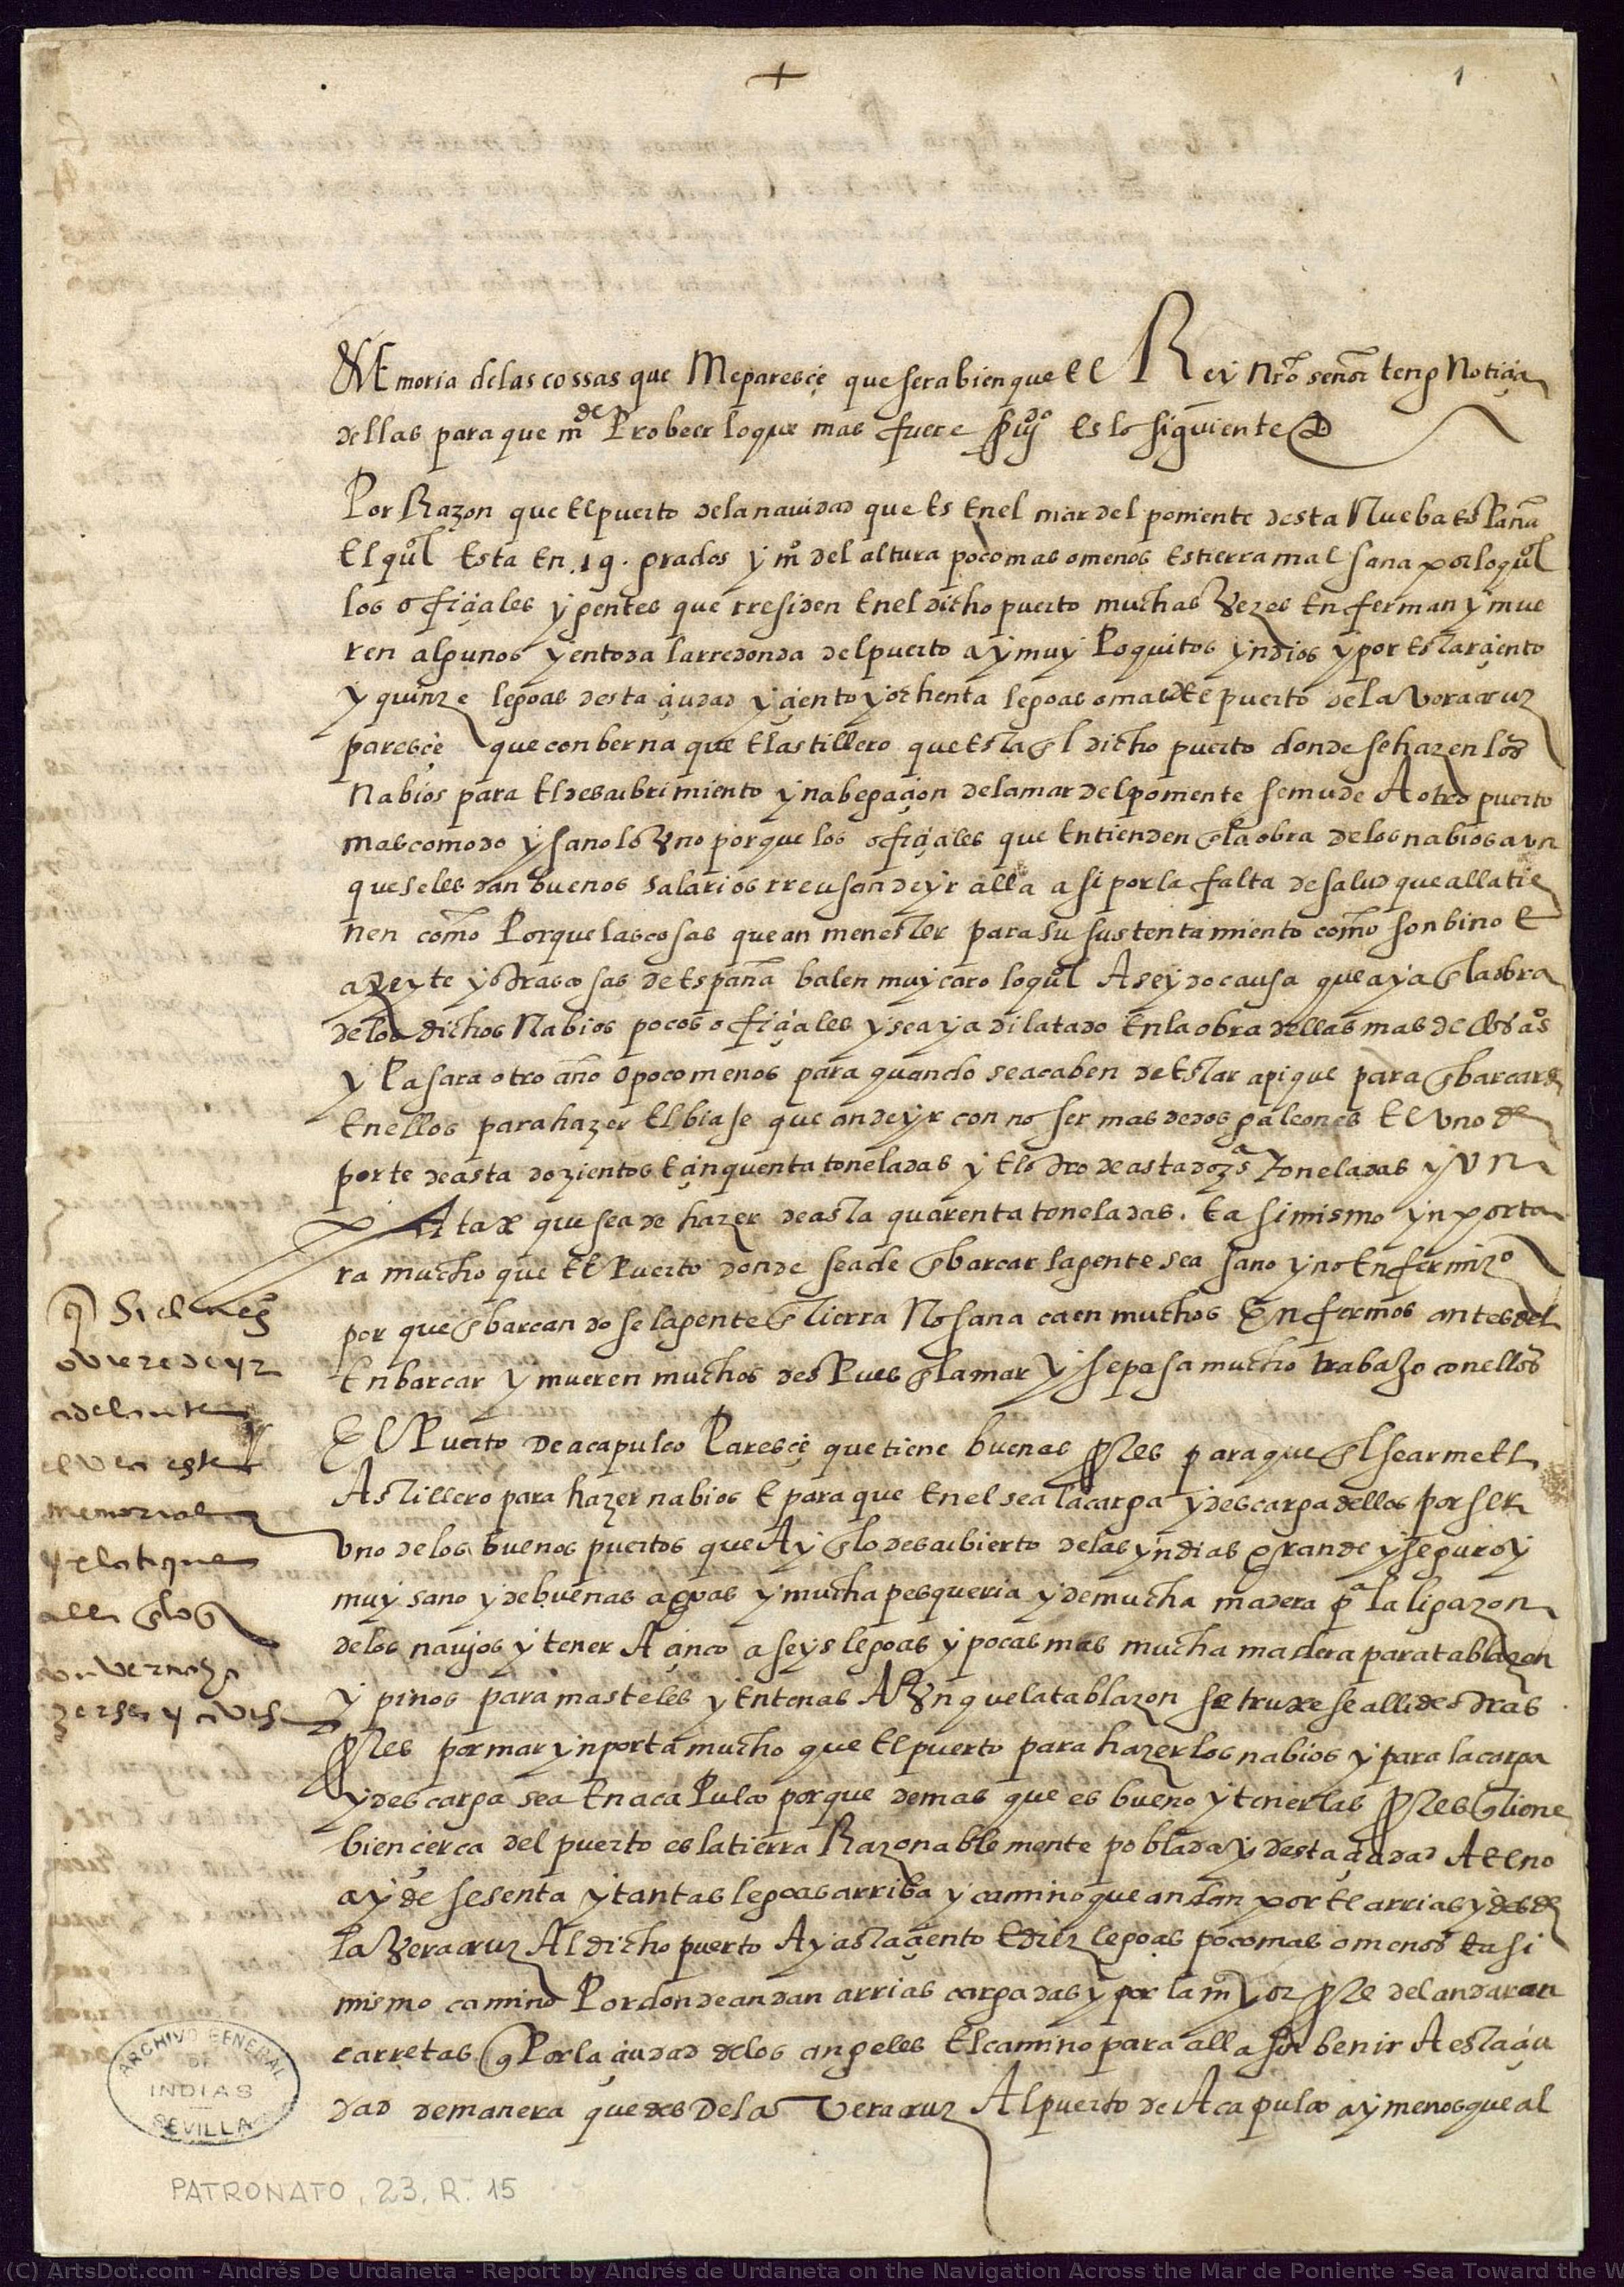 +
1
Memoria de las cossas que Me paresçe que sera bien que el Rey nrõ señor teng Notiçia
dellas para que mde Probeer lo que mas fuere es lo siguiente
Por Razon que el puerto de la nauidad que es en el mar del poniente desta Nueba españa
El qual esta en .19. grados y mº del altura poco mas o menos es tierra mal sana por lo qual
los ofiçiales y gentes que rresiden en el dicho puerto muchas Vezes enferman y mue
ren algunos y en toda la rredonda del puerto ay muy Poquitos yndios y por estar çiento
y quinze legoas desta çiudad y çiento y ochenta legoas o mas del puerto de la Veracruz
paresçe que conberna que el astillero que esta en el dicho puerto donde se hazen los
Nabios para el descubrimiento y nabegaçion de la mar del poniente se mude A otro puerto
mas comodo y sano lo Vno porque los ofiçiales que entienden en la obra de los nabios aun
que se les dan buenos salarios rreusan de yr alla asi por la falta de salud que alla tie
nen como Porque las cosas que an menester para su sustentamiento como son bino e
azeyte y otras cosas de españa balen muy caro lo qual A seydo causa que aya en la obra
de los dichos Nabios pocos ofiçiales y se aya dilatado en la obra dellas mas de dos años
y Pasara otro año o poco menos para quando se acaben de estar a pique para enbarcar
en ellos para hazer el biaje que an de yr con no ser mas de dos galeones el vno de
porte de asta dozientos e çinquenta toneladas y el otro de asta dozas toneladas y vn
Patax que se a de hazer de asta quarenta toneladas. E asimismo ynporta
ra mucho que el Puerto donde se a de enbarcar la gente sea sano y no enfermizo
por que enbarcandose la gente en tierra No sana caen muchos enfermos antes del
enbarcar y mueren muchos desPues en la mar y se pasa mucho trabajo con ellos
El Puerto de acapulco Paresçe que tiene buenas partes para que en el se arme el
Astillero para hazer nabios e para que en el sea la carga y descarga dellos por ser
vno de los buenos puertos que Ay en lo descubierto de las yndias grande y seguro y
muy sano y de buenas agoas y mucha pesqueria y de mucha madera pa la ligazon
de los naujos y tener A çinco a seys legoas y pocas mas mucha madera para tablazon
y pinos para masteles y entenas AVnque la tablazon se truxese alli de otras
partes por mar ynporta mucho que el puerto para hazer los nabios y para la carga
y descarga sea en acaPulco porque demas que es bueno y tener las partes que tiene
bien çerca del puerto es la tierra Razonablemente poblada y desta çiudad A el no
ay de sesenta y tantas legoas arriba y camino que andan por el arrias y desde
la Veracruz Al dicho puerto Ay asta çiento e diez legoas poco mas o menos e asi
mismo camino Por donde andan arrias cargadas y por la mayor parte del andaran
carretas Por la çiudad de los angeles el camino para alla sin benir A esta çiu
dad de manera que desde la Veracruz Al puerto de Acapulco ay menos que al
q Si el
oviere de yr
adelante
el vea este
memorial
y platique
alli
ARCHIVO GENERAL
DE
INDIAS
SEVILLA
PATRONATO, 23, R. 15
(C) ArtsDot.com - Andrés De Urdaneta - Report by Andrés de Urdaneta on the Navigation Across the Mar de Poniente -Sea Toward the W